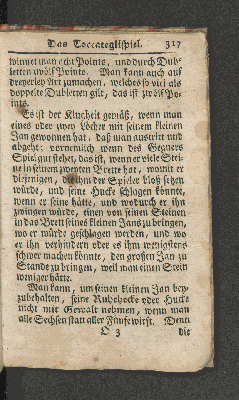 Das Toccategllspiel. 317
winnet man acht Points, und durch Dub-
letten zwölf Points. Man kann auch auf
dreyerley Art zumachen, welches so viel als
doppelte Dubletten gilt, das ist zwölf Po-
ints.
Es ist der Klugheit gemäß, wenn man
eines oder zwey Löcher mit seinem kleinen
Jan gewonnen hat, daß man austritt und
abgehet; vornemlich wenn des Gegners
Spiel gut stehet, das ist, wenn er viele Stei-
ne in seinem zweyten Brette hat, womit er
diejenigen, die ihn der Spieler bloß setzen
würde, und seine Hucke schlagen könnte,
wenn er seine hätte, und wodurch er ihn
zwingen würde, einen von seinen Steinen
in das Brett seines kleinen Jans zu bringen,
wo er würde geschlagen werden, und wo
er ihn verhindern oder es ihm wenigstens
schwer machen könnte, den großen Jan zu
Stande zu bringen, weil man einen Stein
weniger hätte.
Man kann, um seinen kleinen Jan bey-
zubehalten, seine Ruhehecke oder Hucke
nicht mit Gewalt nehmen, wenn man
alle Sechsen statt aller Fünfe wirft. Denn
O 3 die